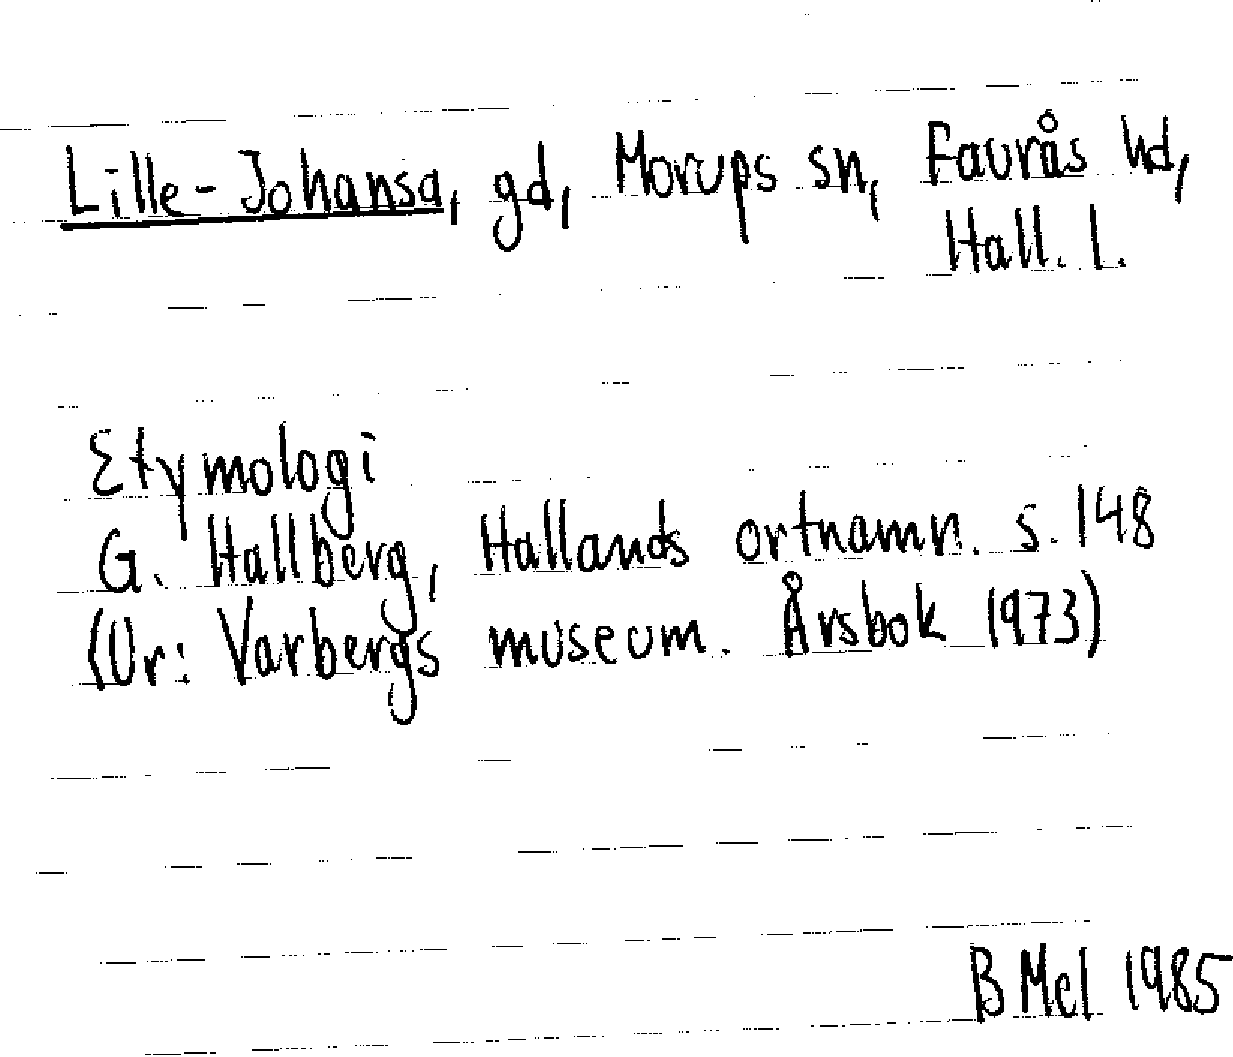 Lille-Johansa, gd, Morups sn, Faurås hd,
Hall. l.
Etymologi
G. Hallberg, Hallands ortnamn. s. 148
(Ur: Varbergs museum. Årsbok 1973)
B Mel 1985